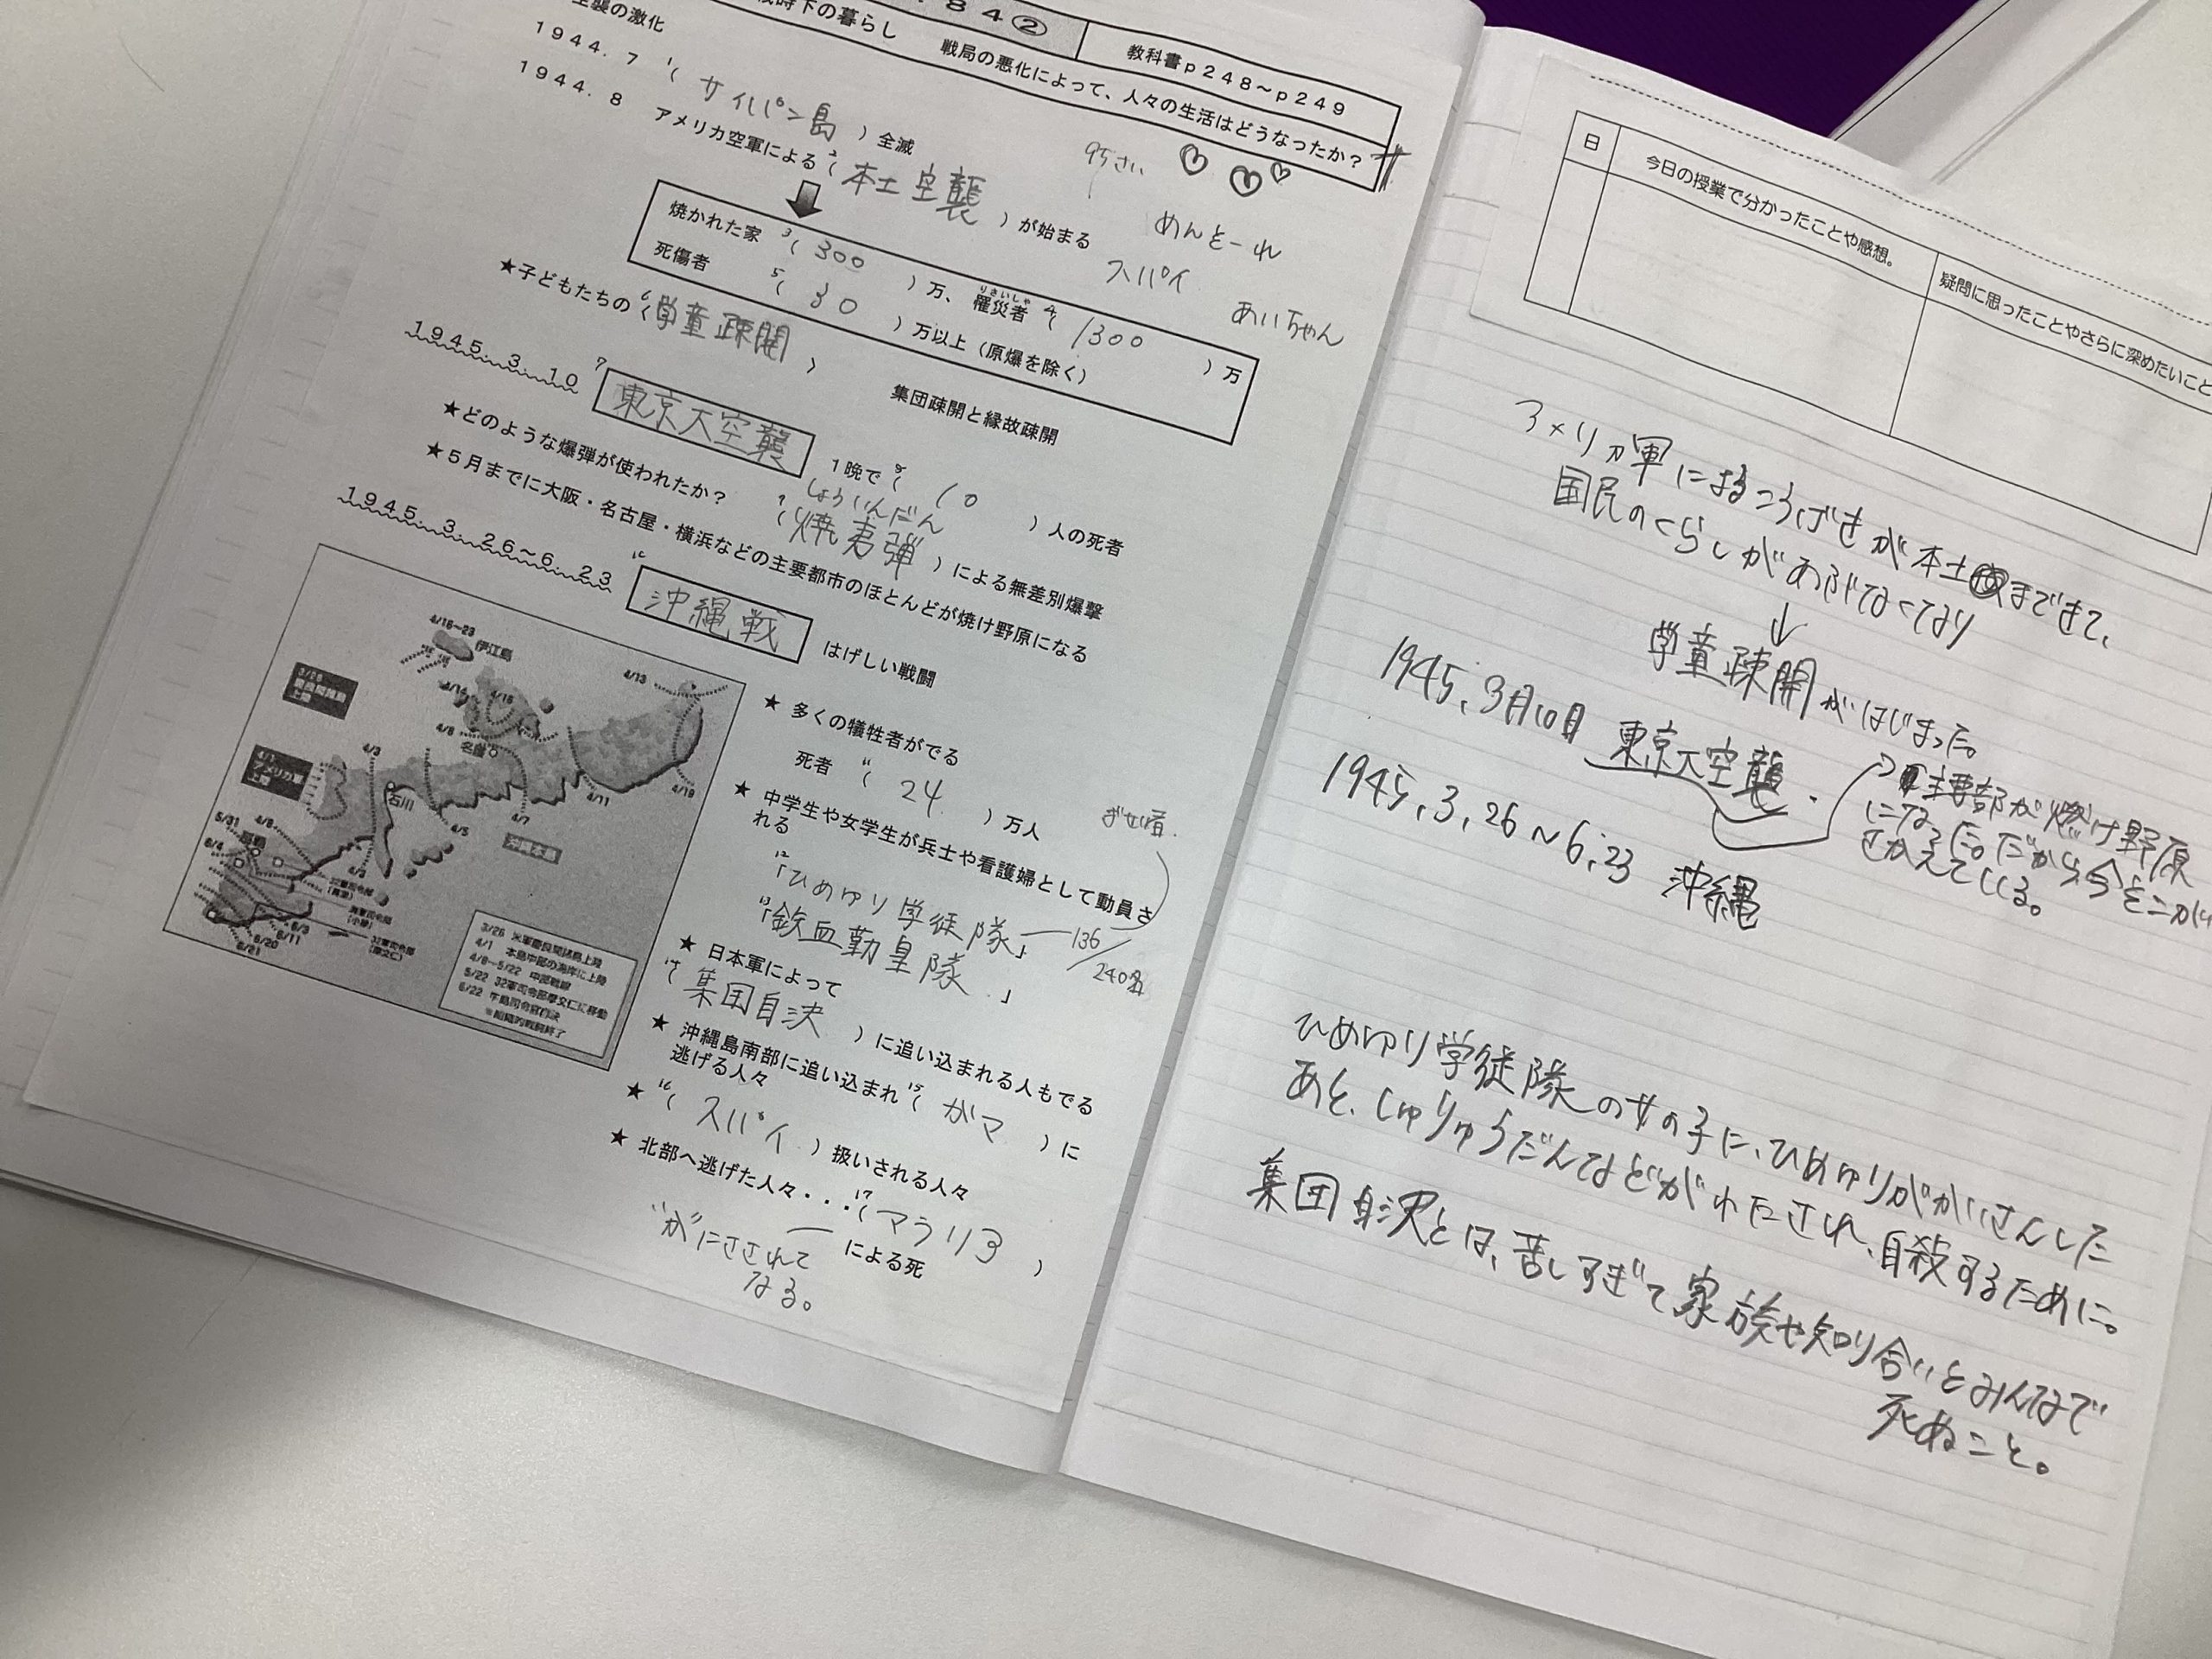 ８４②
教科書ｐ２４８～ｐ２４９
戦時下の暮らし　戦局の悪化によって、人々の生活はどうなったか？
空襲の激化
１９４４．７　1（サイパン島）全滅
１９４４．８　アメリカ空軍による2（本土空襲）が始まる
95さい
めんとーれ
スパイ
あいちゃん
焼かれた家　3（300）万、罹災者（りさいしゃ）4（1300）万
死傷者　5（30）万以上（原爆を除く）
★子どもたちの6（学童疎開）　集団疎開と縁故疎開
１９４５．３．１０　7　東京大空襲　１晩で8（10）人の死者
しょういんだん
★どのような爆弾が使われたか？　9（焼夷弾）による無差別爆撃
★５月までに大阪・名古屋・横浜などの主要都市のほとんどが焼け野原になる
１９４５．３．２６～６．２３　10　沖縄戦　はげしい戦闘
4/16~23
伊江島
4/13
名護
4/1
アメリカ軍
上陸
4/3
石川
4/11
4/19
4/7
4/5
沖縄本島
5/31
4/8
6/4
6/20
6/11
6/21
3/26　米軍慶良間諸島上陸
4/1　本島中部の海岸に上陸
4/8~5/22　中部戦線
5/22　32軍司令部摩文仁に移動
6/22　牛島司令官自決
※組織的戦闘終了
★　多くの犠牲者がでる
死者　11（24）万人
★　中学生や女学生が兵士や看護婦として動員さ
れる
12「ひめゆり学徒隊」136/240名
13「鉄血勤皇隊」
★　日本軍によって
14（集団自決）に追い込まれる人もでる
★　沖縄島南部に追い込まれ15（ガマ）に
逃げる人々
★　16（スパイ）扱いされる人々
★　北部へ逃げた人々・・・17（マラリヨ）
による死
"か"にさされて
なる。
日
今日の授業で分かったことや感想。
疑問に思ったことやさらに深めたいこと
アメリカ軍によるこうげきが本土まできて、
国民のくらしがあぶなくなり
↓
学童疎開がはじまった。
1945、3月10日　東京大空襲.
主要部が燃け野原
になった。だから今をこがい
さかえている。
1945,3,26～6,23　沖縄
ひめゆり学徒隊の女の子に、ひめゆりがかいさんした
あと、しゅりゅうだんなどがわたされ、自殺するために。
集団自決とは、苦しすぎて家族や知り合いとみんなで
死ぬこと。